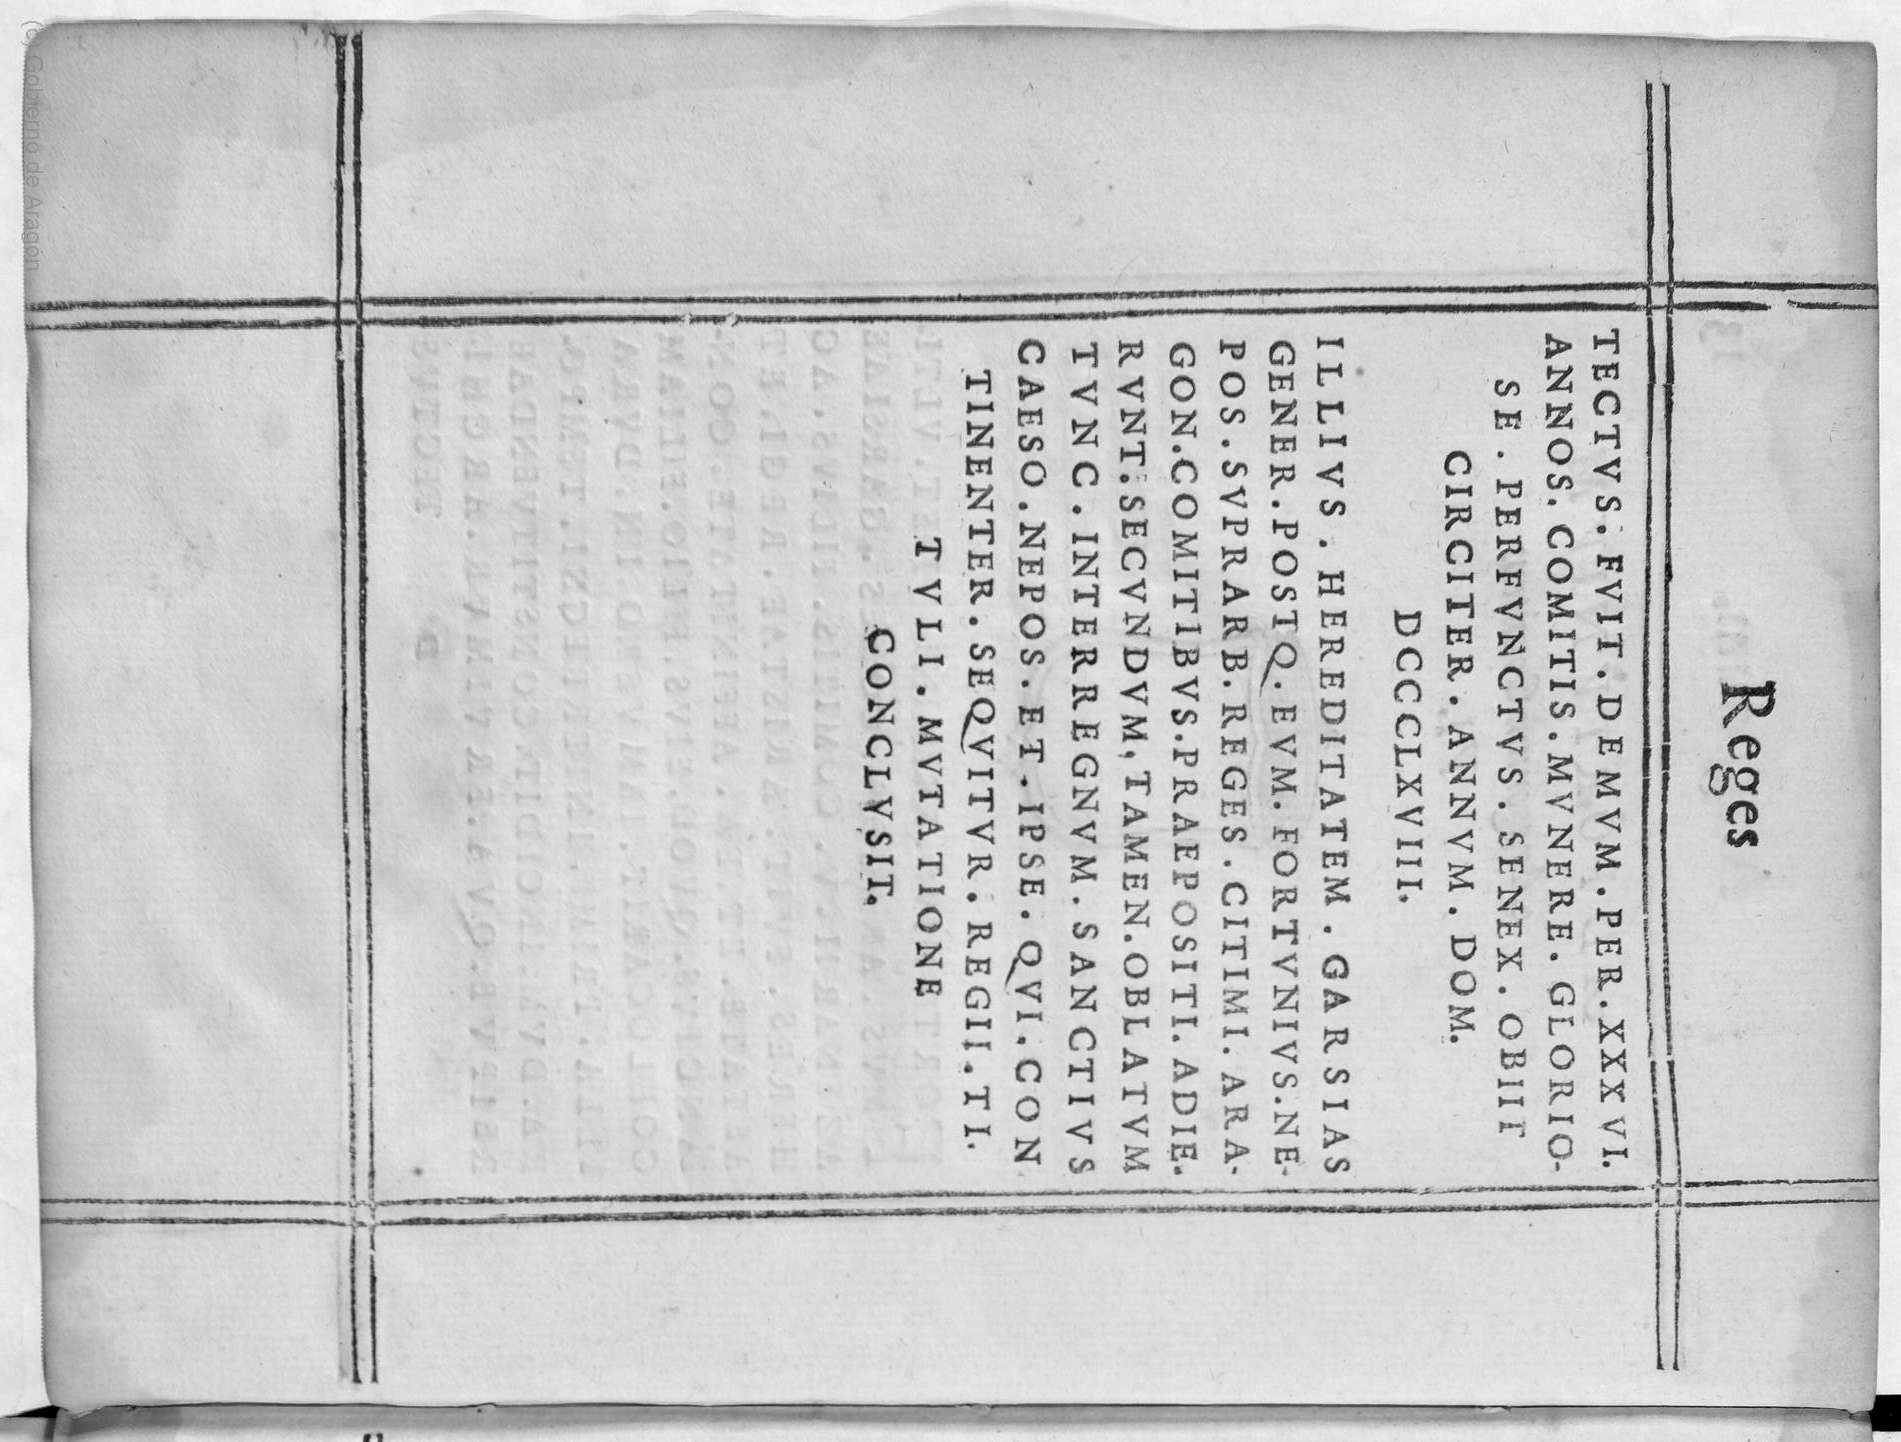 Reges
TECTVS. FVIT. DEMVM. PER. XXXVI.
ANNOS. COMITIS. MVNERE. GLORIO-
SE. PERFVNCTVS. SENEX. OBIIT
CIRCITER. ANNVM. DOM.
DCCCLXVIII.
ILLIVS. HEREDITATEM. GARSIAS
GENER. POSTQ. EVM. FORTVNIVS. NE-
POS. SVPRARB. REGES. CITIMI. ARA-
GON. COMITIBVS. PRAEPOSITI. ADIE-
RVNT: SECVNDVM, TAMEN. OBLATVM
TVNC. INTERREGNVM. SANCTIVS
CAESO. NEPOS. ET. IPSE. QVI. CON
TINENTER. SEQVITVR. REGII. TI-
TVLI. MVTATIONE
CONCLVSIT.
(c) Gobierno de Aragón